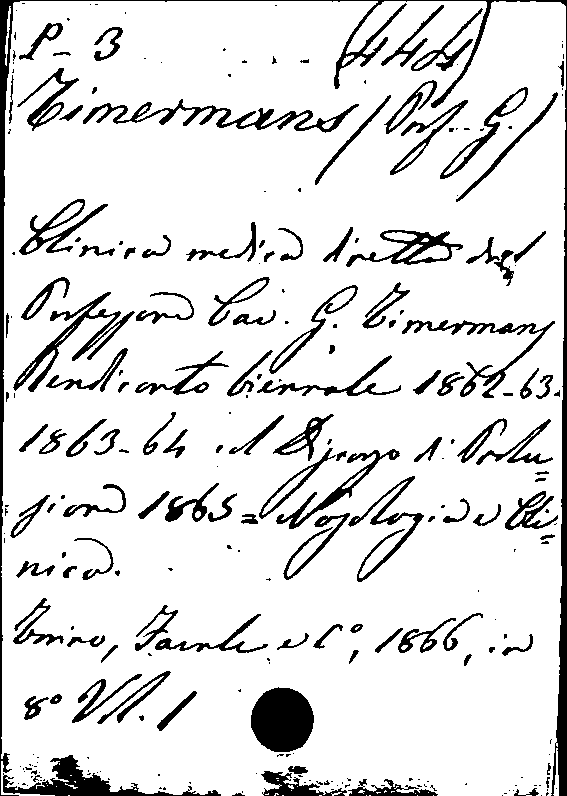 P-3 (444)
Timermans (Prof. G.)
Clinica medica diretta dal
Professore Cav. G. Timermans
Rendiconto biennale 1862-63.
1863-64 ed Discorso di Prolu=
sione 1865 = Nosologia e Cli=
nica.
Torino, Favale e C°, 1866, in
8° Vol. 1